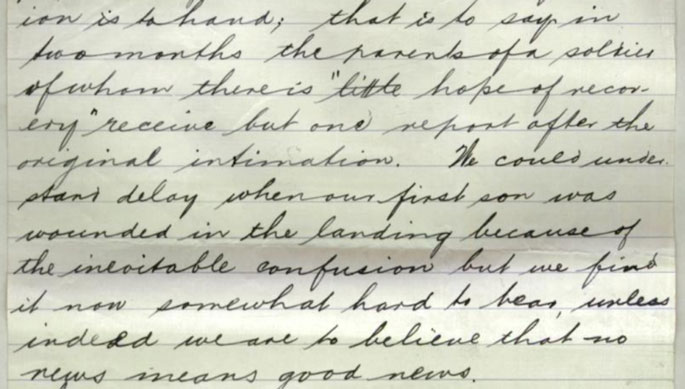 ion is to hand; that is to say in
two months the parents of a soldier
of whom there is "little hope of recov-
ery" receive but one report after the
original intimation. We could under-
stand delay when our first son was
wounded in the landing because of
the inevitable confusion but we find
it now somewhat hard to bear, unless
indeed we are to believe that no
news means good news.